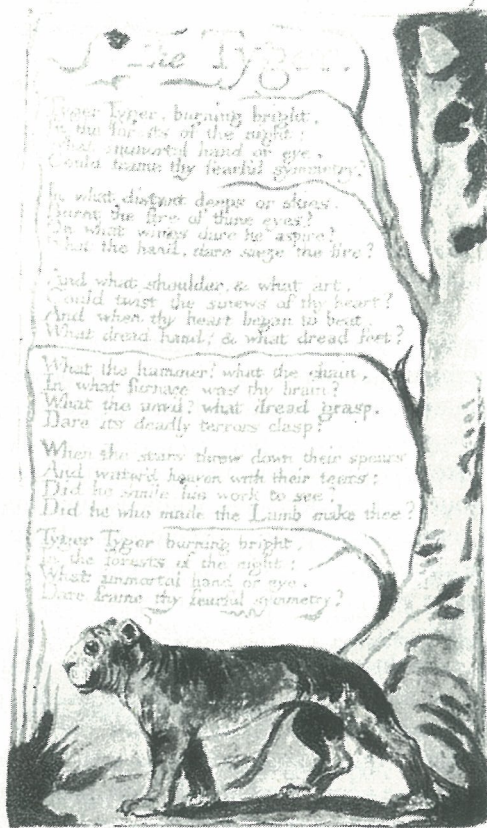 The Tyger.
Tyger Tyger, burning bright,
In the forests of the night:
What immortal hand or eye,
Could frame thy fearful symmetry?
In what distant deeps or skies.
Burnt the fire of thine eyes?
On what wings dare he aspire?
What the hand, dare sieze the fire?
And what shoulder, & what art,
Could twist the sinews of thy heart?
And when thy heart began to beat,
What dread hand? & what dread feet?
What the hammer? what the chain,
In what furnace was thy brain?
What the anvil? what dread grasp,
Dare its deadly terrors clasp?
When the stars threw down their spears
And water'd heaven with their tears:
Did he smile his work to see?
Did he who made the Lamb make thee?
Tyger Tyger burning bright,
In the forests of the night:
What immortal hand or eye,
Dare frame thy fearful symmetry?